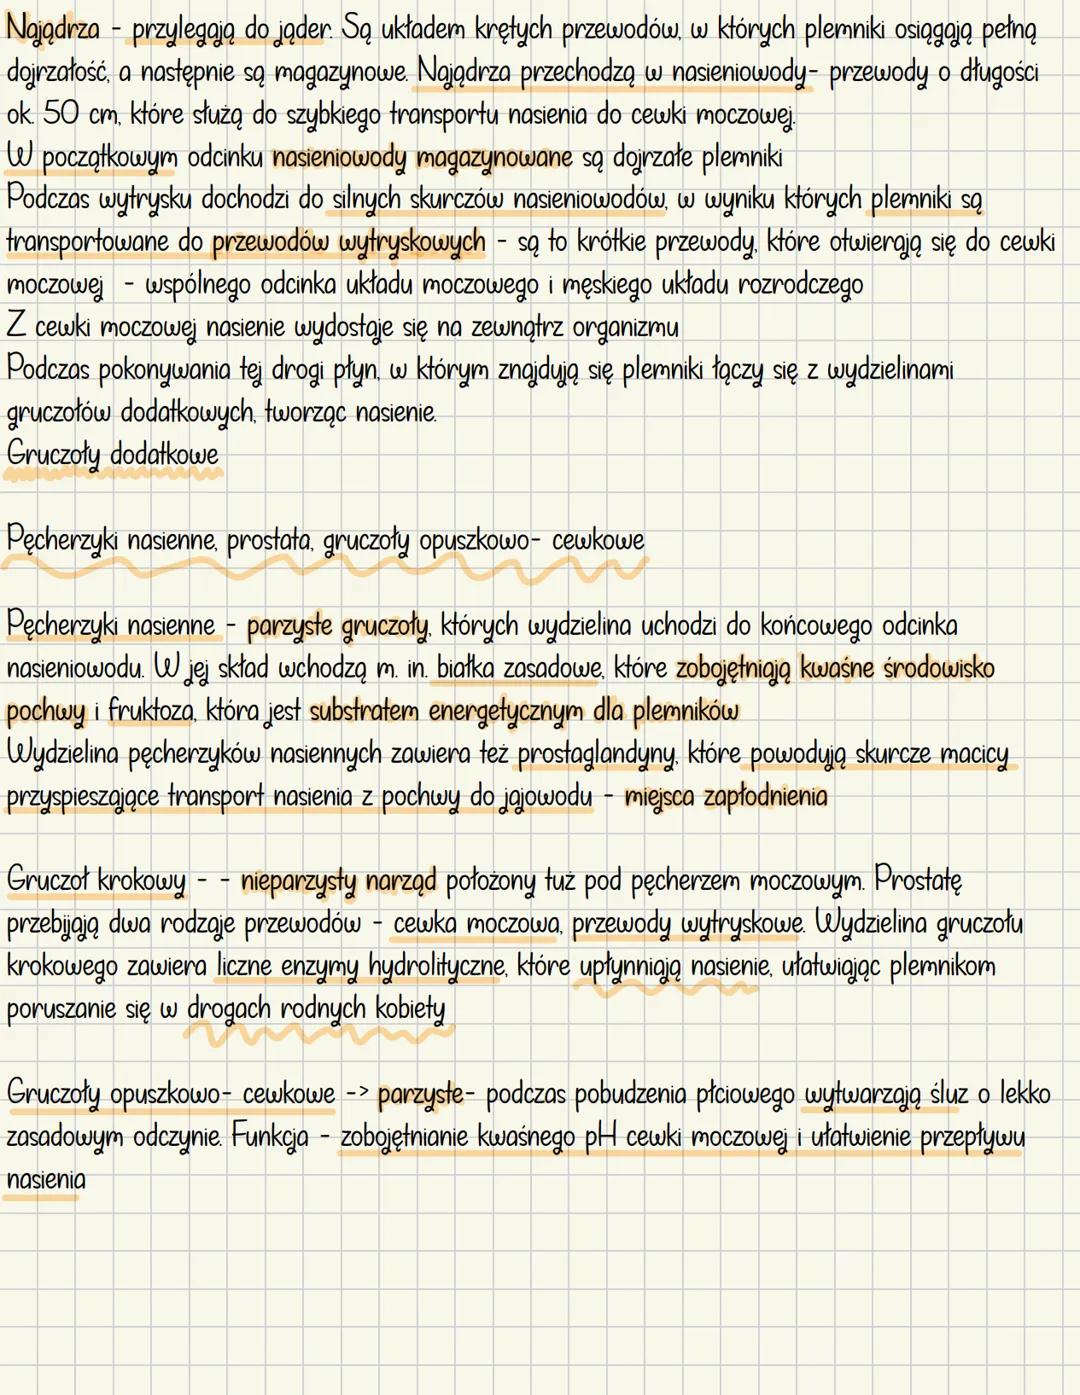 Najądrza - przylegają do jąder. Są układem krętych przewodów, w których plemniki osiągają pełną
dojrzałość, a następnie są magazynowe. Najądrza przechodzą w nasieniowody- przewody o długości
ok. 50 cm, które służą do szybkiego transportu nasienia do cewki moczowej.
W początkowym odcinku nasieniowody magazynowane są dojrzałe plemniki
Podczas wytrysku dochodzi do silnych skurczów nasieniowodów, w wyniku których plemniki są
transportowane do przewodów wytryskowych - są to krótkie przewody, które otwierają się do cewki
moczowej - wspólnego odcinka układu moczowego i męskiego układu rozrodczego
Z cewki moczowej nasienie wydostaje się na zewnątrz organizmu
Podczas pokonywania tej drogi płyn, w którym znajdują się plemniki łączy się z wydzielinami
gruczołów dodatkowych, tworząc nasienie.
Gruczoły dodatkowe
Pęcherzyki nasienne, prostata, gruczoły opuszkowo- cewkowe
Pęcherzyki nasienne - parzyste gruczoły, których wydzielina uchodzi do końcowego odcinka
nasieniowodu. W jej skład wchodzą m. in. białka zasadowe, które zobojętniają kwaśne środowisko
pochwy i fruktoza, która jest substratem energetycznym dla plemników
Wydzielina pęcherzyków nasiennych zawiera też prostaglandyny, które powodują skurcze macicy
przyspieszające transport nasienia z pochwy do jajowodu - miejsca zapłodnienia
Gruczoł krokowy - - nieparzysty narząd położony tuż pod pęcherzem moczowym. Prostatę
przebijają dwa rodzaje przewodów - cewka moczowa, przewody wytryskowe. Wydzielina gruczołu
krokowego zawiera liczne enzymy hydrolityczne, które upłynniają nasienie, ułatwiając plemnikom
poruszanie się w drogach rodnych kobiety
Gruczoły opuszkowo- cewkowe -> parzyste- podczas pobudzenia płciowego wytwarzają śluz o lekko
zasadowym odczynie. Funkcja - zobojętnianie kwaśnego pH cewki moczowej i ułatwienie przepływu
nasienia